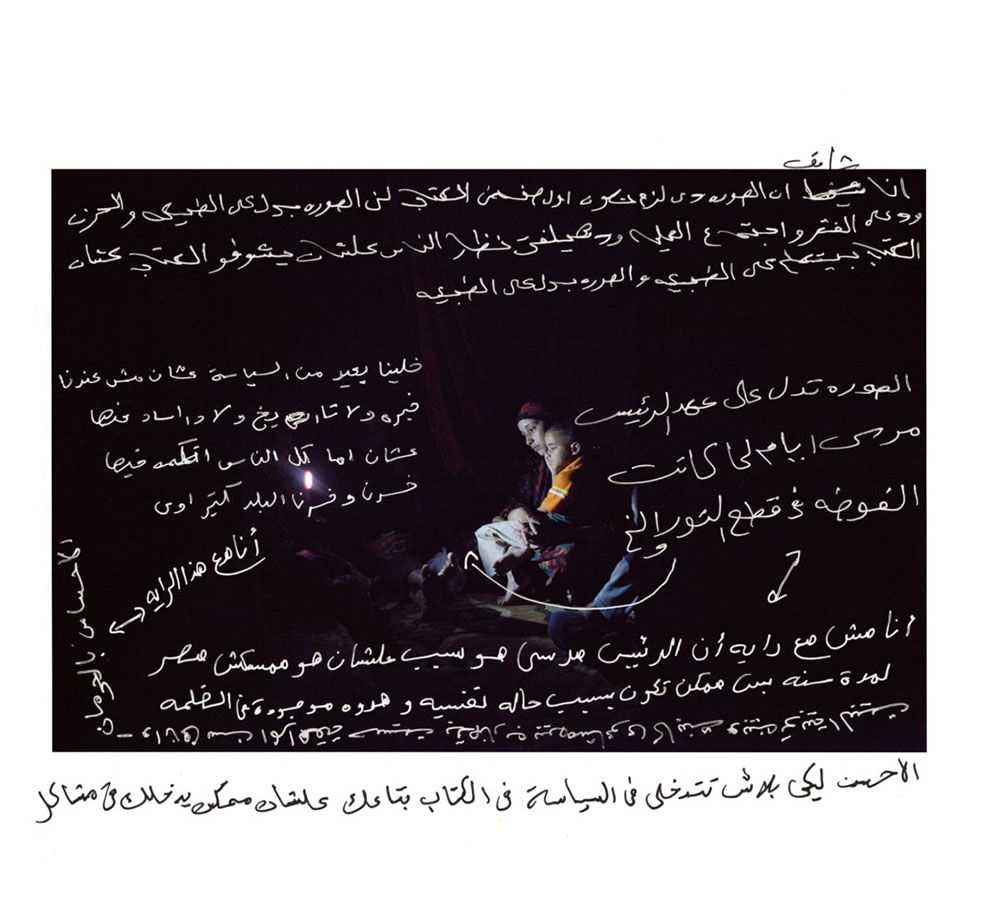 شايف
انا ان الصوره دى لازم تكون اول الكتاب لان الصوره بتدل على والحزن
الفقر واجتماع العيله نظر الناس علشان يشوفو الكتاب عشان
الكتاب بيتكلم على الطبيعه والصوره بتدل على الطبيعه
خلينا بعيد من السياسة عشان مش عندنا
خبره ولا تاريخ ولا دراسات عنها
عشان اما كل الناس اتكلمه فيها
خسرنا وخسرنا البلد كتير اوى
الصوره تدل على عهد الرئيس
مرسى ايام لما كانت
الفوضه فى قطع النور الخ
أنا مع هذا الرايه
الاحساس بالحرمان
أنا مش مع رايه أن الرئيس مرسى هو سبب علشان هو ممسكش مصر
لمدة سنه بس ممكن تكون بسبب حاله نفسيه و هدوه موجودة فى الضلمه
الاحسن ليكى بلاش تتدخلى فى السياسة فى الكتاب بتاعك علشان ممكن يدخلك فى مشاكل